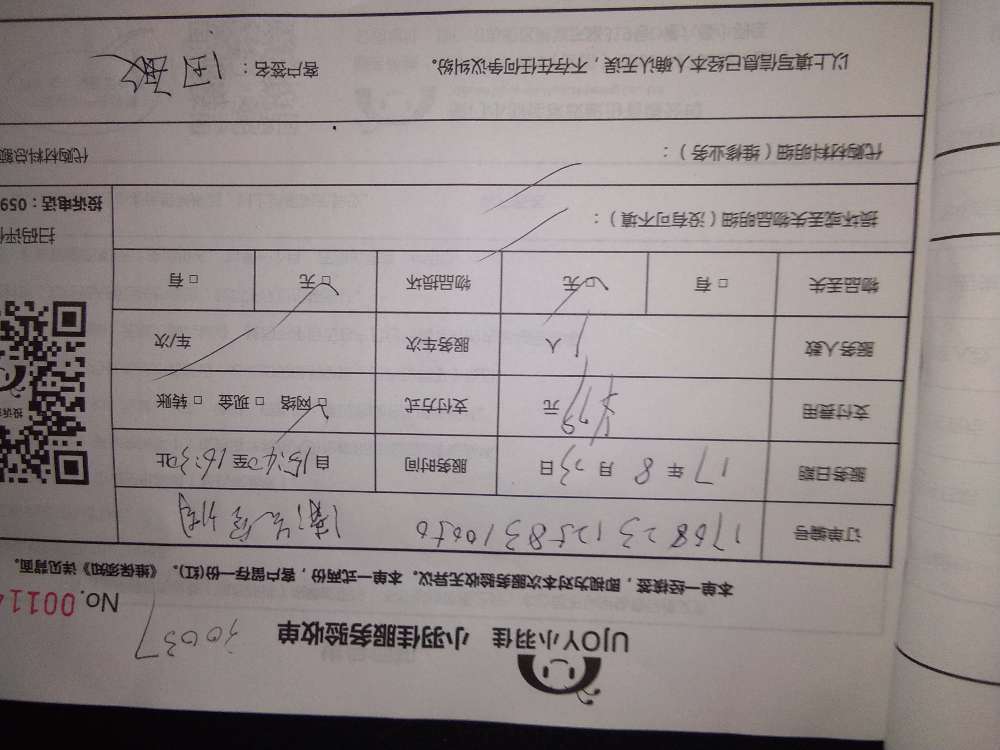 UJOY小羽佳 小羽佳服务验收单 30037
No. 0011
本单一经核签，即视为对本次服务验收无异议。本单一式两份，客户留存一份(红)。《维保须知》详见背面。
订单编号 170823125831005
服务日期 17年8月23日 服务时间 自15:40至16:30止
支付费用 ¥79元 支付方式 □网络 □现金 □转账
服务人数 1人 服务车次 车/次
物品丢失 □有 □无 物品损坏 □无 □有
损坏或丢失物品明细（没有可不填）：
代购材料明细（维修业务）： 代购材料总额
以上填写信息已经本人确认无误，不存在任何争议纠纷。 客户签名：
扫码评价
投诉电话：059